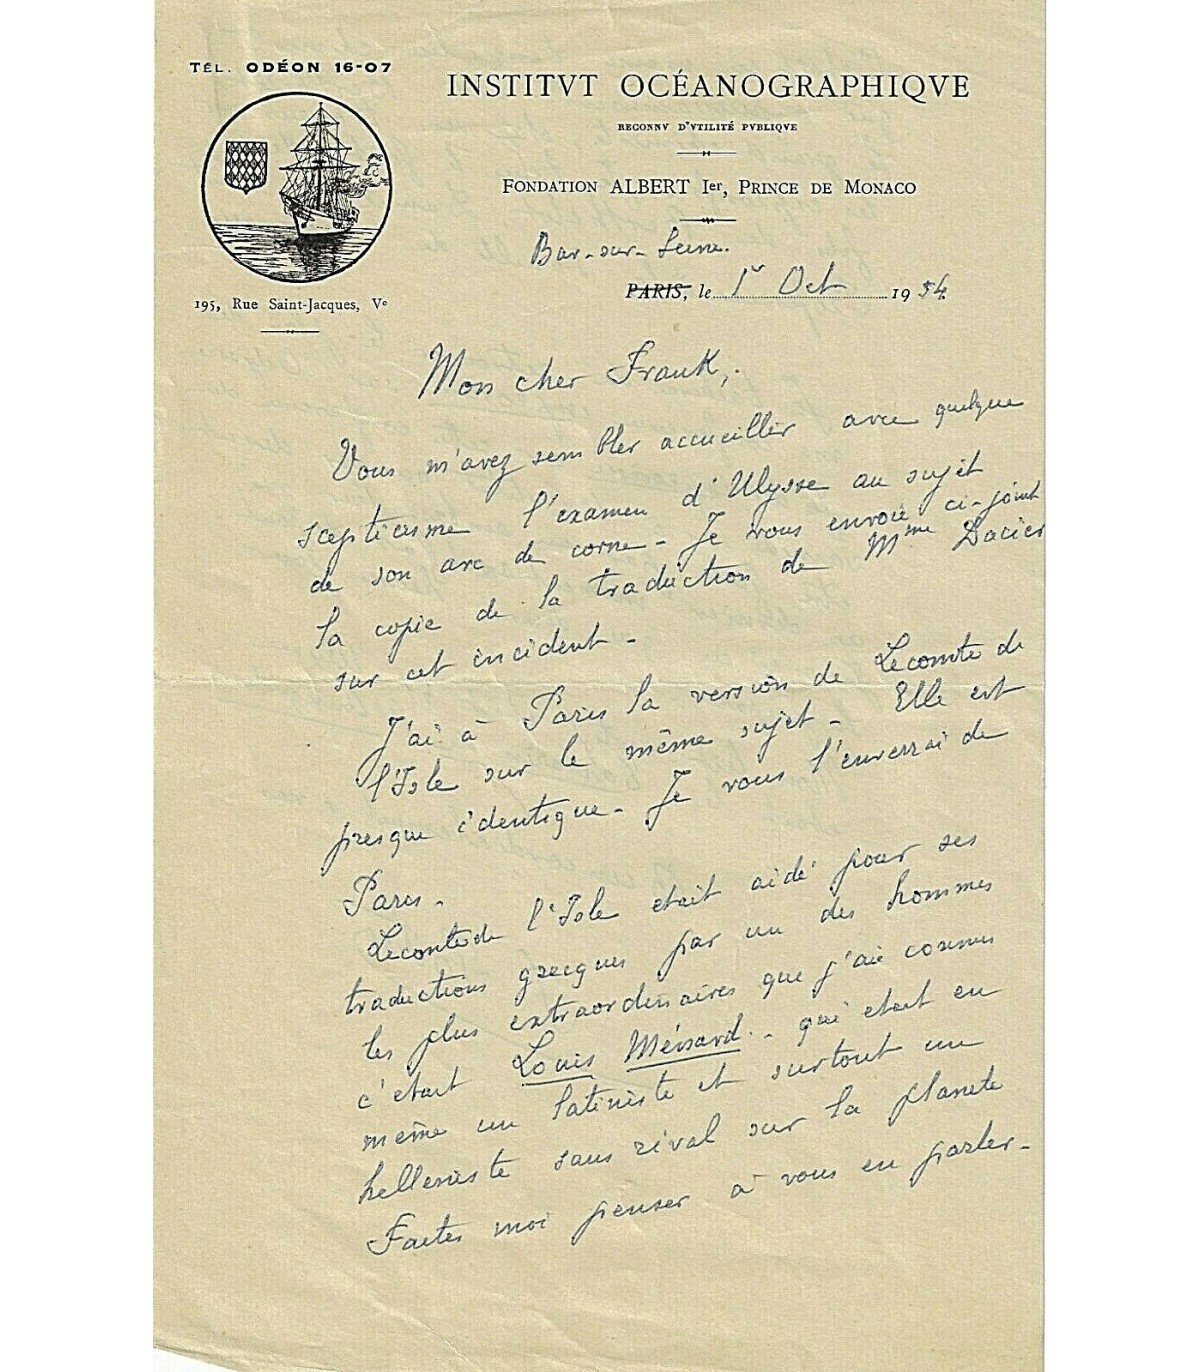 TÉL. ODÉON 16-07
INSTITVT OCÉANOGRAPHIQVE
RECONNV D'VTILITÉ PVBLIQVE
FONDATION ALBERT Ier, PRINCE DE MONACO
195, Rue Saint-Jacques, Ve
Bar-sur-Seine.
PARIS, le 1er Oct 1954.
Mon cher Frank,.
Vous m'avez sembler accueillir avec quelque
scepticisme l'examen d'Ulysse au sujet
de son arc de corne - Je vous envoie ci-joint
la copie de la traduction de Mme Dacier
sur cet incident -
J'ai à Paris la version de Lecomte de
l'Isle sur le même sujet - Elle est
presque identique - Je vous l'enverrai de
Paris -
Lecomte de l'Isle etait aidé pour ses
traductions grecques par un des hommes
les plus extraordinaires que j'aie connus
c'etait Louis Ménard - qui etait en
meme un latiniste et surtout un
helleniste sans rival sur la planete
Faites moi penser à vous en parler -